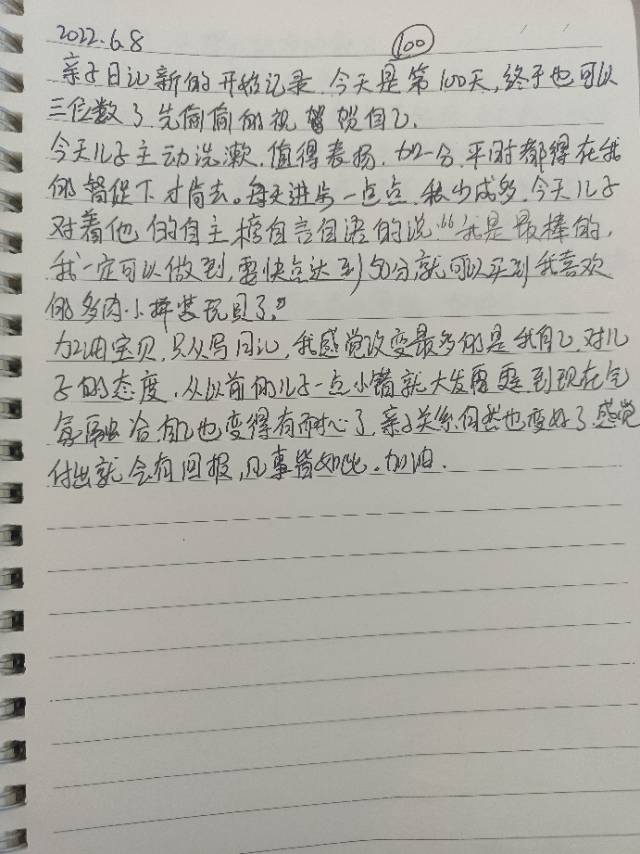 2022.6.8
100
亲子日记新的开始记录.今天是第100天,终于也可以
三位数了.先偷偷的祝贺自己.
今天儿子主动洗漱.值得表扬.加一分.平时都得在我
的督促下才肯去。每天进步一点点.积少成多.今天儿子
对着他的自主榜自言自语的说:“我是最棒的,
我一定可以做到,要快点达到50分,就可以买到我喜欢
的多肉小拼装玩具了。”
加油宝贝.只从写日记,我感觉改变最多的是我自己.对儿
子的态度.从以前的儿子一点小错就大发雷霆到现在气
氛融洽.自己也变得有耐心了.亲子关系自然也变好了.感觉
付出就会有回报,凡事皆如此.加油.